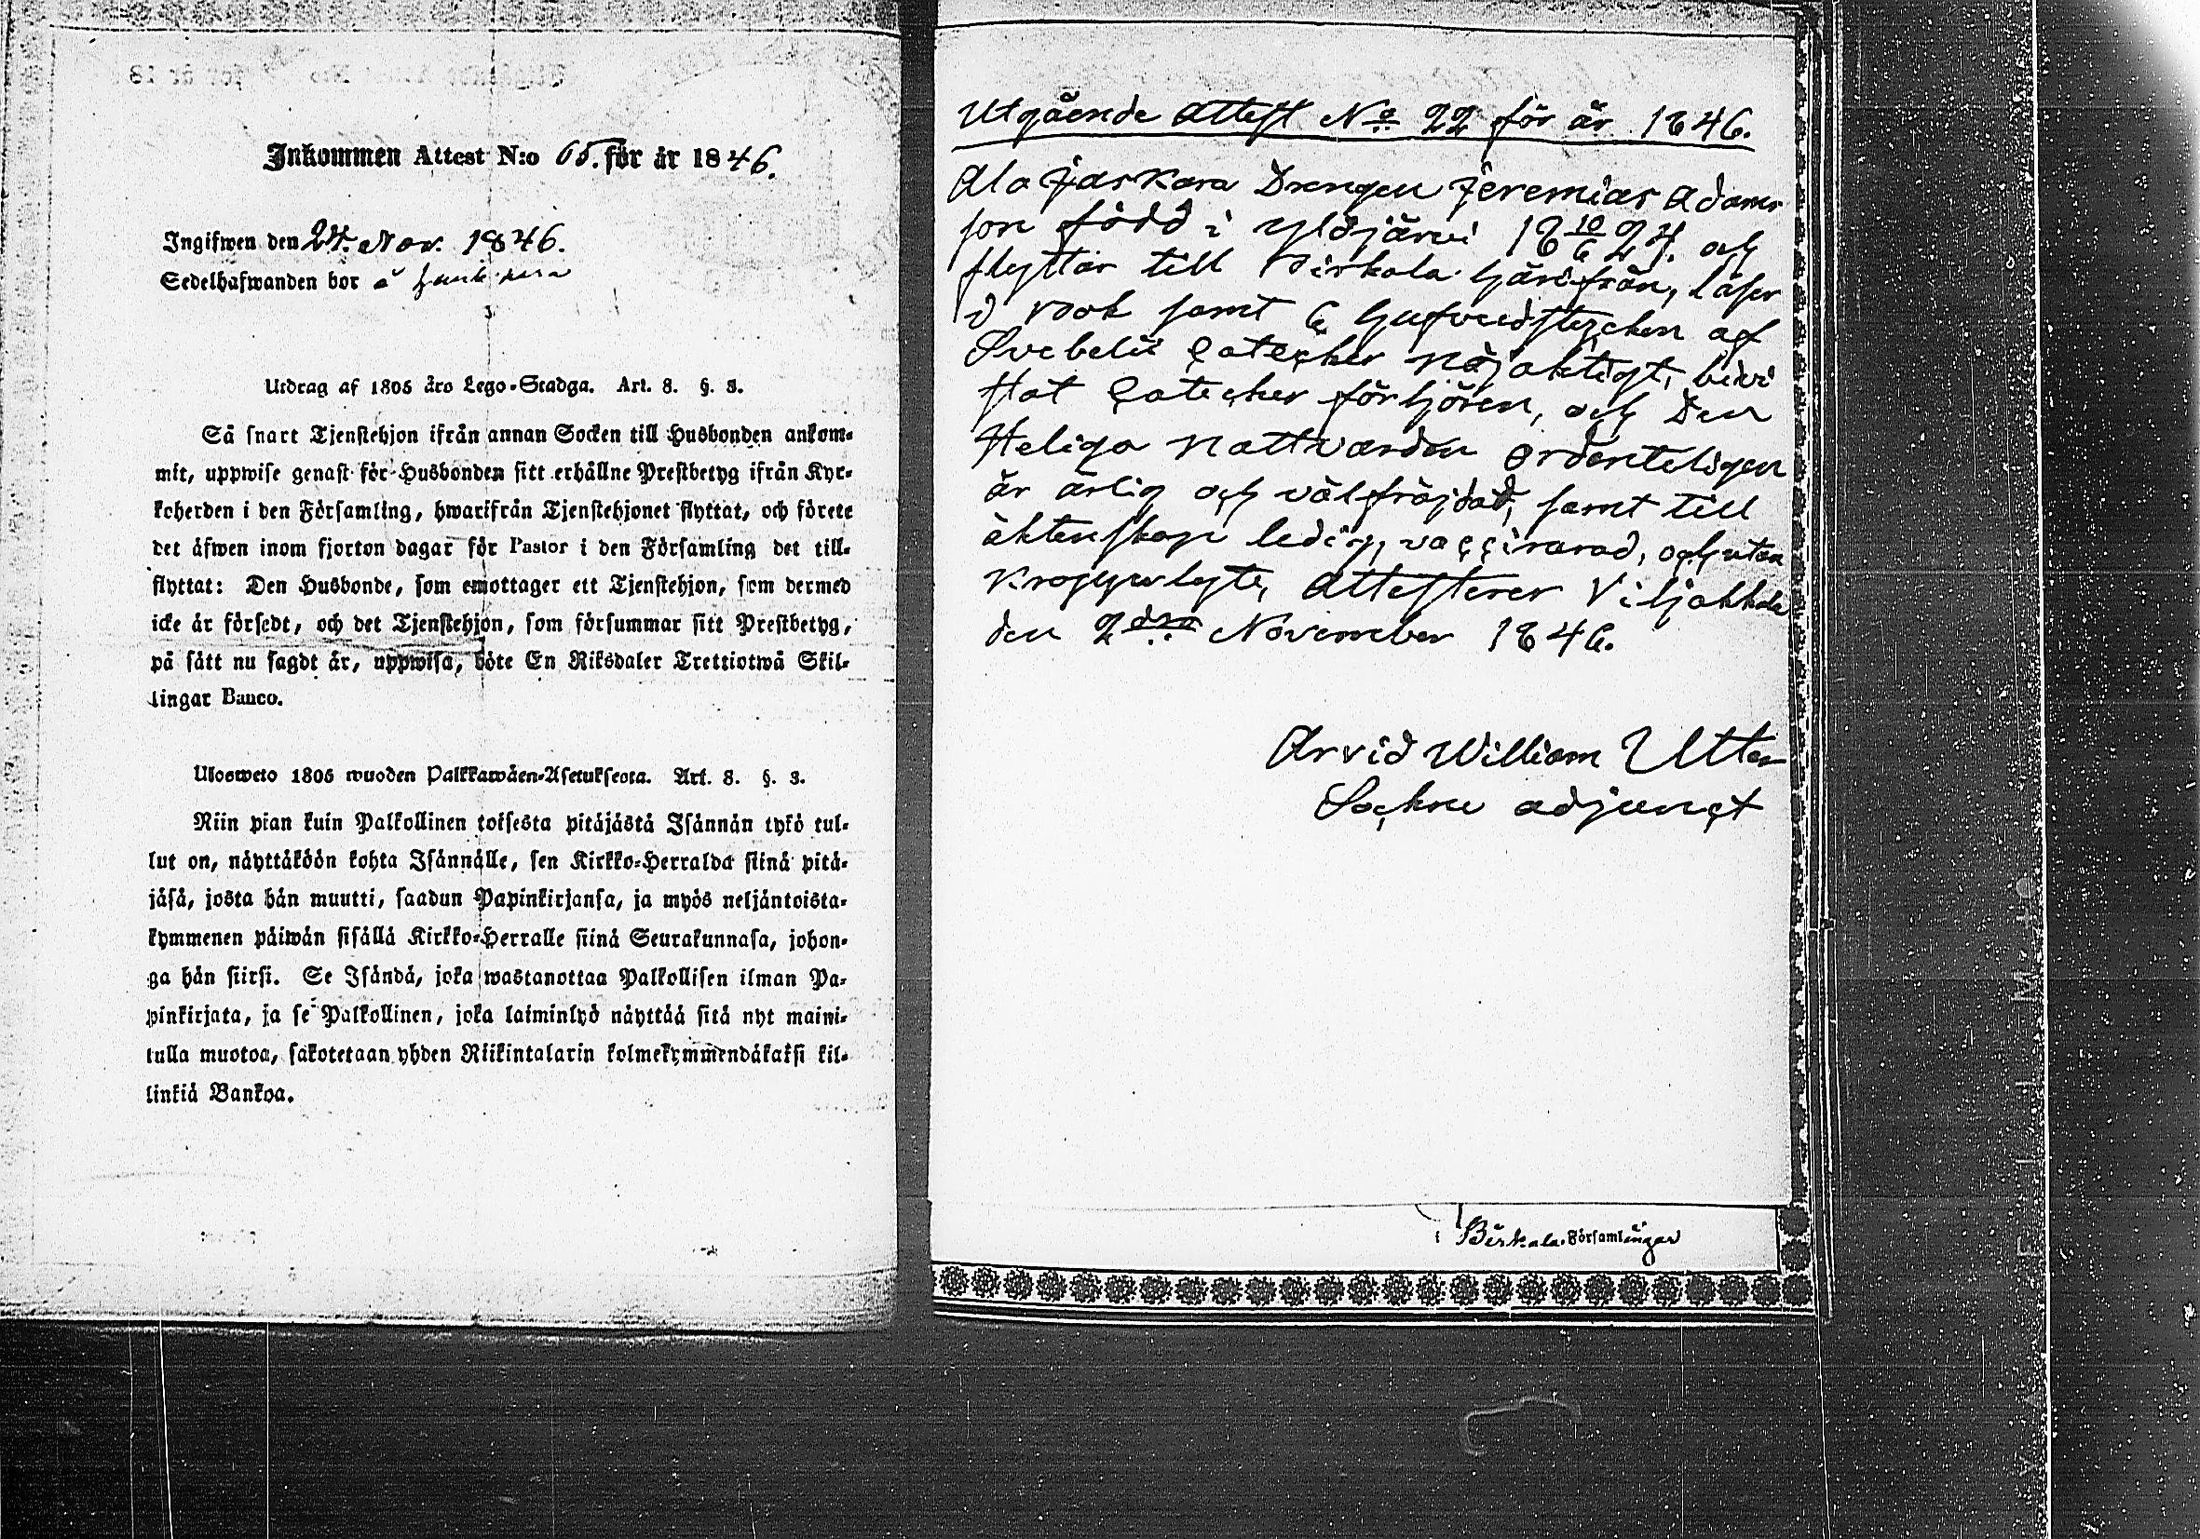 Inkommen Attest N:o 65. för år 1846.
Ingifwen den 24. Nov. 1846.
Sedelhafwanden bor å
Utdrag af 1805 års Lego-Stadga. Art. 8. §. 3.
Så snart Tjenstehjon ifrån annan Socken till Husbonden ankom-
mit, uppwise genast för Husbonden sitt erhållne Prestbetyg ifrån Kyr-
koherden i den Församling, hwarifrån Tjenstehjonet flyttat, och förete
det äfwen inom fjorton dagar för Pastor i den Församling det till-
flyttat: Den Husbonde, som emottager ett Tjenstehjon, som dermed
icke är försedt, och det Tjenstehjon, som försummar sitt Prestbetyg,
på sätt nu sagdt är, uppwisa, böte En Riksdaler Trettiotwå Skil-
lingar Banco.
Ulosweto 1805 wuoden Palkkawäen-Asetuksesta. Art. 8. §. 3.
Niin pian kuin Palkollinen toisesta pitäjästä Isännän tykö tul-
lut on, näyttäköön kohta Isännälle, sen Kirkko-Herralda siinä pitä-
jäsä, josta hän muutti, saadun Papinkirjansa, ja myös neljäntoista-
kymmenen päiwän sisällä Kirkko-Herralle siinä Seurakunnasa, johon-
ga hän siirsi. Se Isändä, joka wastanottaa Palkollisen ilman Pa-
pinkirjata, ja se Palkollinen, joka laiminlyö näyttää sitä nyt maini-
tulla muotoa, sakotetaan yhden Riikintalarin kolmekymmendäkaksi kil-
linkiä Bankoa.
Utgående Attest No 22 för år 1846.
Ala Jaskara Drengen Jeremias Adams
son född i Ylöjärvi 18 10/6 24. och
flyttar till Birkala härifrån, läser
i book samt 6 hufvudstycken af
Svebelii Cateches nöjaktigt, bevi
stat Cateches förhören, och Den
Heliga Nattvarden ordenteligen
är ärlig och välfräjdad, samt till
äktenskap ledig, vaccinerad, och utan
kroppslyte, Attesterer Viljakkala
den 2dra November 1846.
Arvid William Utter
Sockne adjunct
i Birkala Församlingar